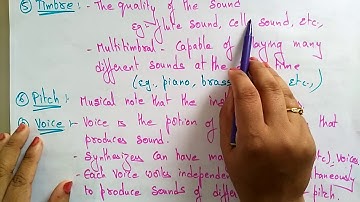 ⑤ Timbre :- The quality of the sound
eg:- flute sound, cello sound, etc.,
- Multitimbral - Capable of playing many
different sounds at the time
(e.g., piano, brass etc.,)
⑥ Pitch :- Musical note that the ins
Voice :- Voice is the potion of that
produces sound.
- Synthesizers can have etc) voices
- Each voice works independen taneously
to produce sounds of diffe pitch.